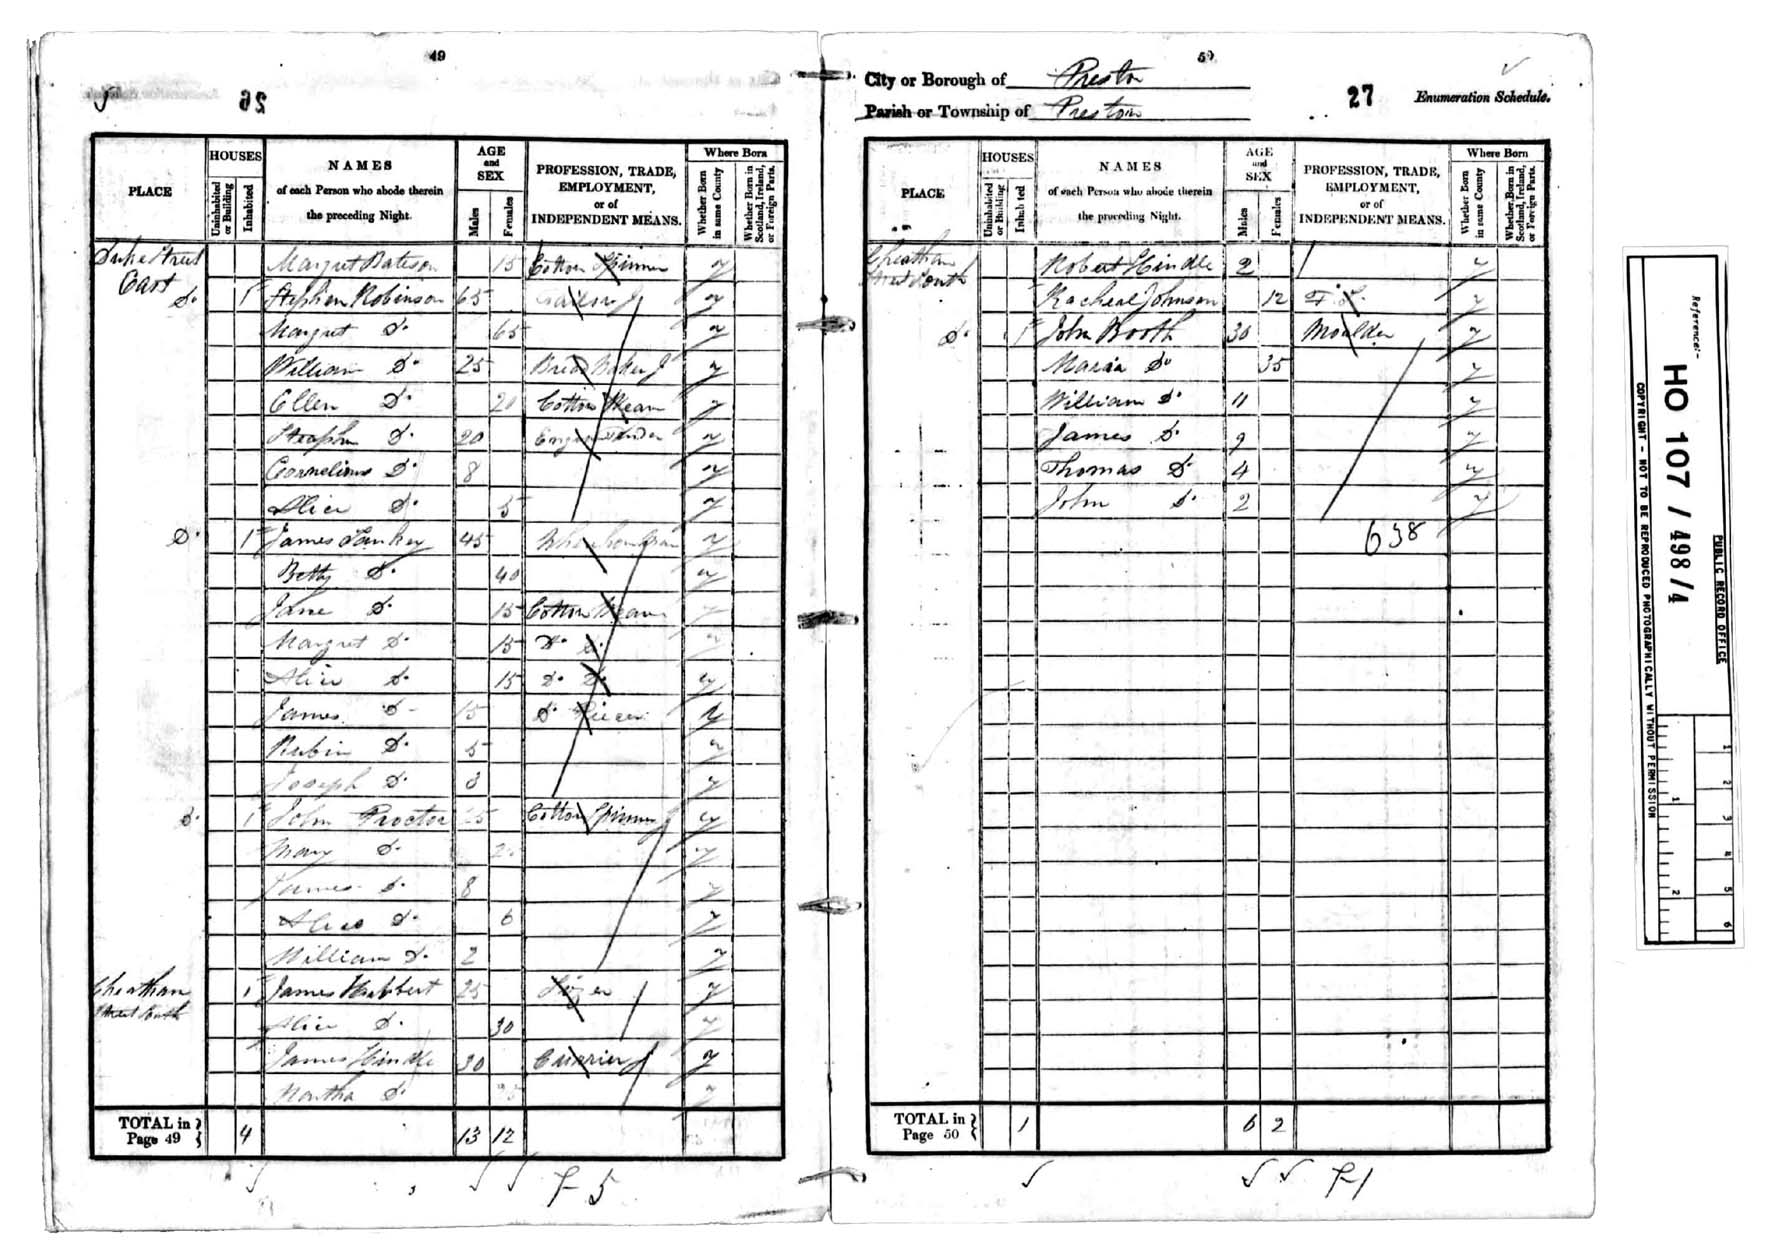 49
26
PLACE
HOUSES
Uninhabited or Building
Inhabited
NAMES
of each Person who abode therein
the preceding Night.
AGE
and
SEX
Males
Females
PROFESSION, TRADE,
EMPLOYMENT,
or of
INDEPENDENT MEANS.
Where Born
Whether Born in same County
Whether Born in Scotland, Ireland, or Foreign Parts.
Duke Street Margret Bateson 15 Cotton Spinner y
East
Do 1 Stephen Robinson 65 Tailor J y
Margret Do 65 y
William Do 25 Bread Baker J y
Ellen Do 20 Cotton Weav y
Do 20 Tender y
Cornelious Do 8 y
Alice Do 5 y
Do 1 James 45 y
Betty Do 40 y
Jane Do 15 Cotton Weav y
Margret Do 15 Do Do y
Alice Do 15 Do Do y
James Do 15 Do Piecer y
Rubin Do 5 y
Joseph Do 3 y
Do 1 John Proctor 25 Cotton Spinner J y
Mary Do y
James Do 8 y
Alice Do 6 y
William Do 2 y
Cheathan 1 James Hubbert 25 y
Street South
Alice Do 30 y
James Hindle 30 Currier J y
Martha Do y
TOTAL in
Page 49 } 4 13 12
F 5
50
City or Borough of Preston
Parish or Township of Preston
27
Enumeration Schedule.
PLACE
HOUSES
Uninhabited or Building
Inhabited
NAMES
of each Person who abode therein
the preceding Night.
AGE
and
SEX
Males
Females
PROFESSION, TRADE,
EMPLOYMENT,
or of
INDEPENDENT MEANS.
Where Born
Whether Born in same County
Whether Born in Scotland, Ireland, or Foreign Parts.
Cheathan Robert Hindle 2 y
Street South
Racheal Johnson 12 F.S. y
Do 1 John Booth 30 Moulder y
Maria Do 35 y
William Do 11 y
James Do 9 y
Thomas Do 4 y
John Do 2 y
638
TOTAL in
Page 50 } 1 6 2
F 1
Reference:-
HO 107 / 498 / 4
PUBLIC RECORD OFFICE
COPYRIGHT - NOT TO BE REPRODUCED PHOTOGRAPHICALLY WITHOUT PERMISSION
1 2 3 4 5 6
1 2